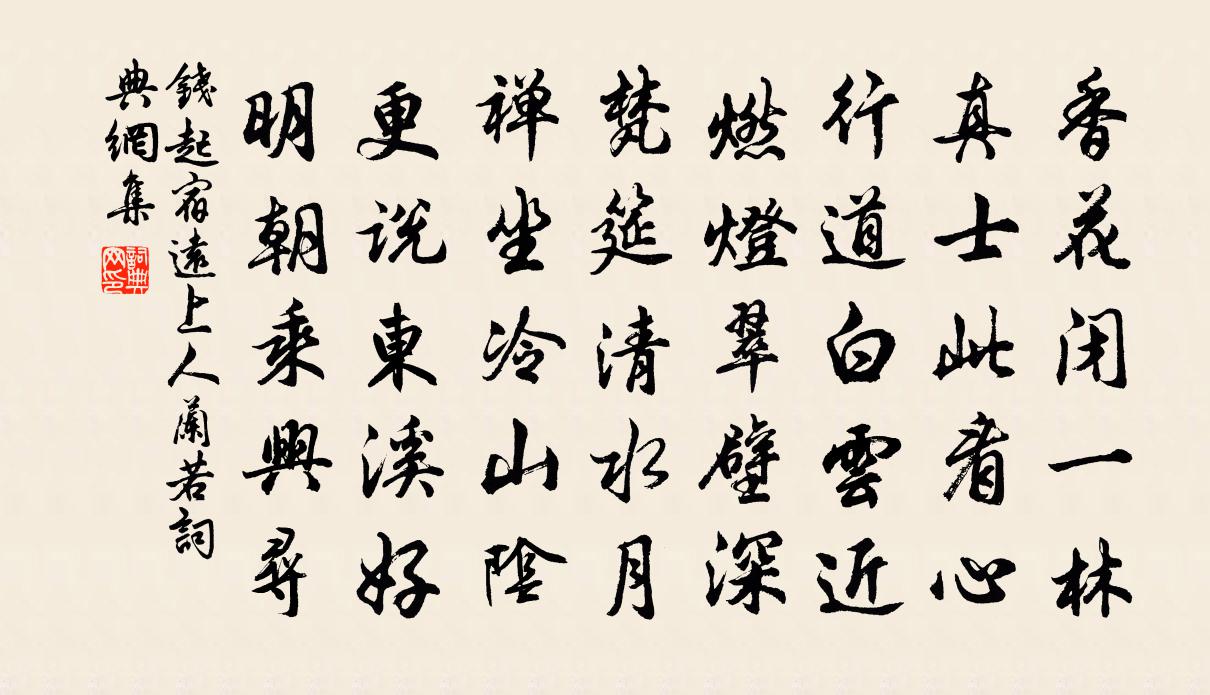 香花闭一林
真士此看心
行道白雲近
燃燈翠壁深
梵筵清水月
禅坐冷山陰
更说東溪好
明朝乘興尋
錢起宿遠上人蘭若詞
典網集
詞典
网印